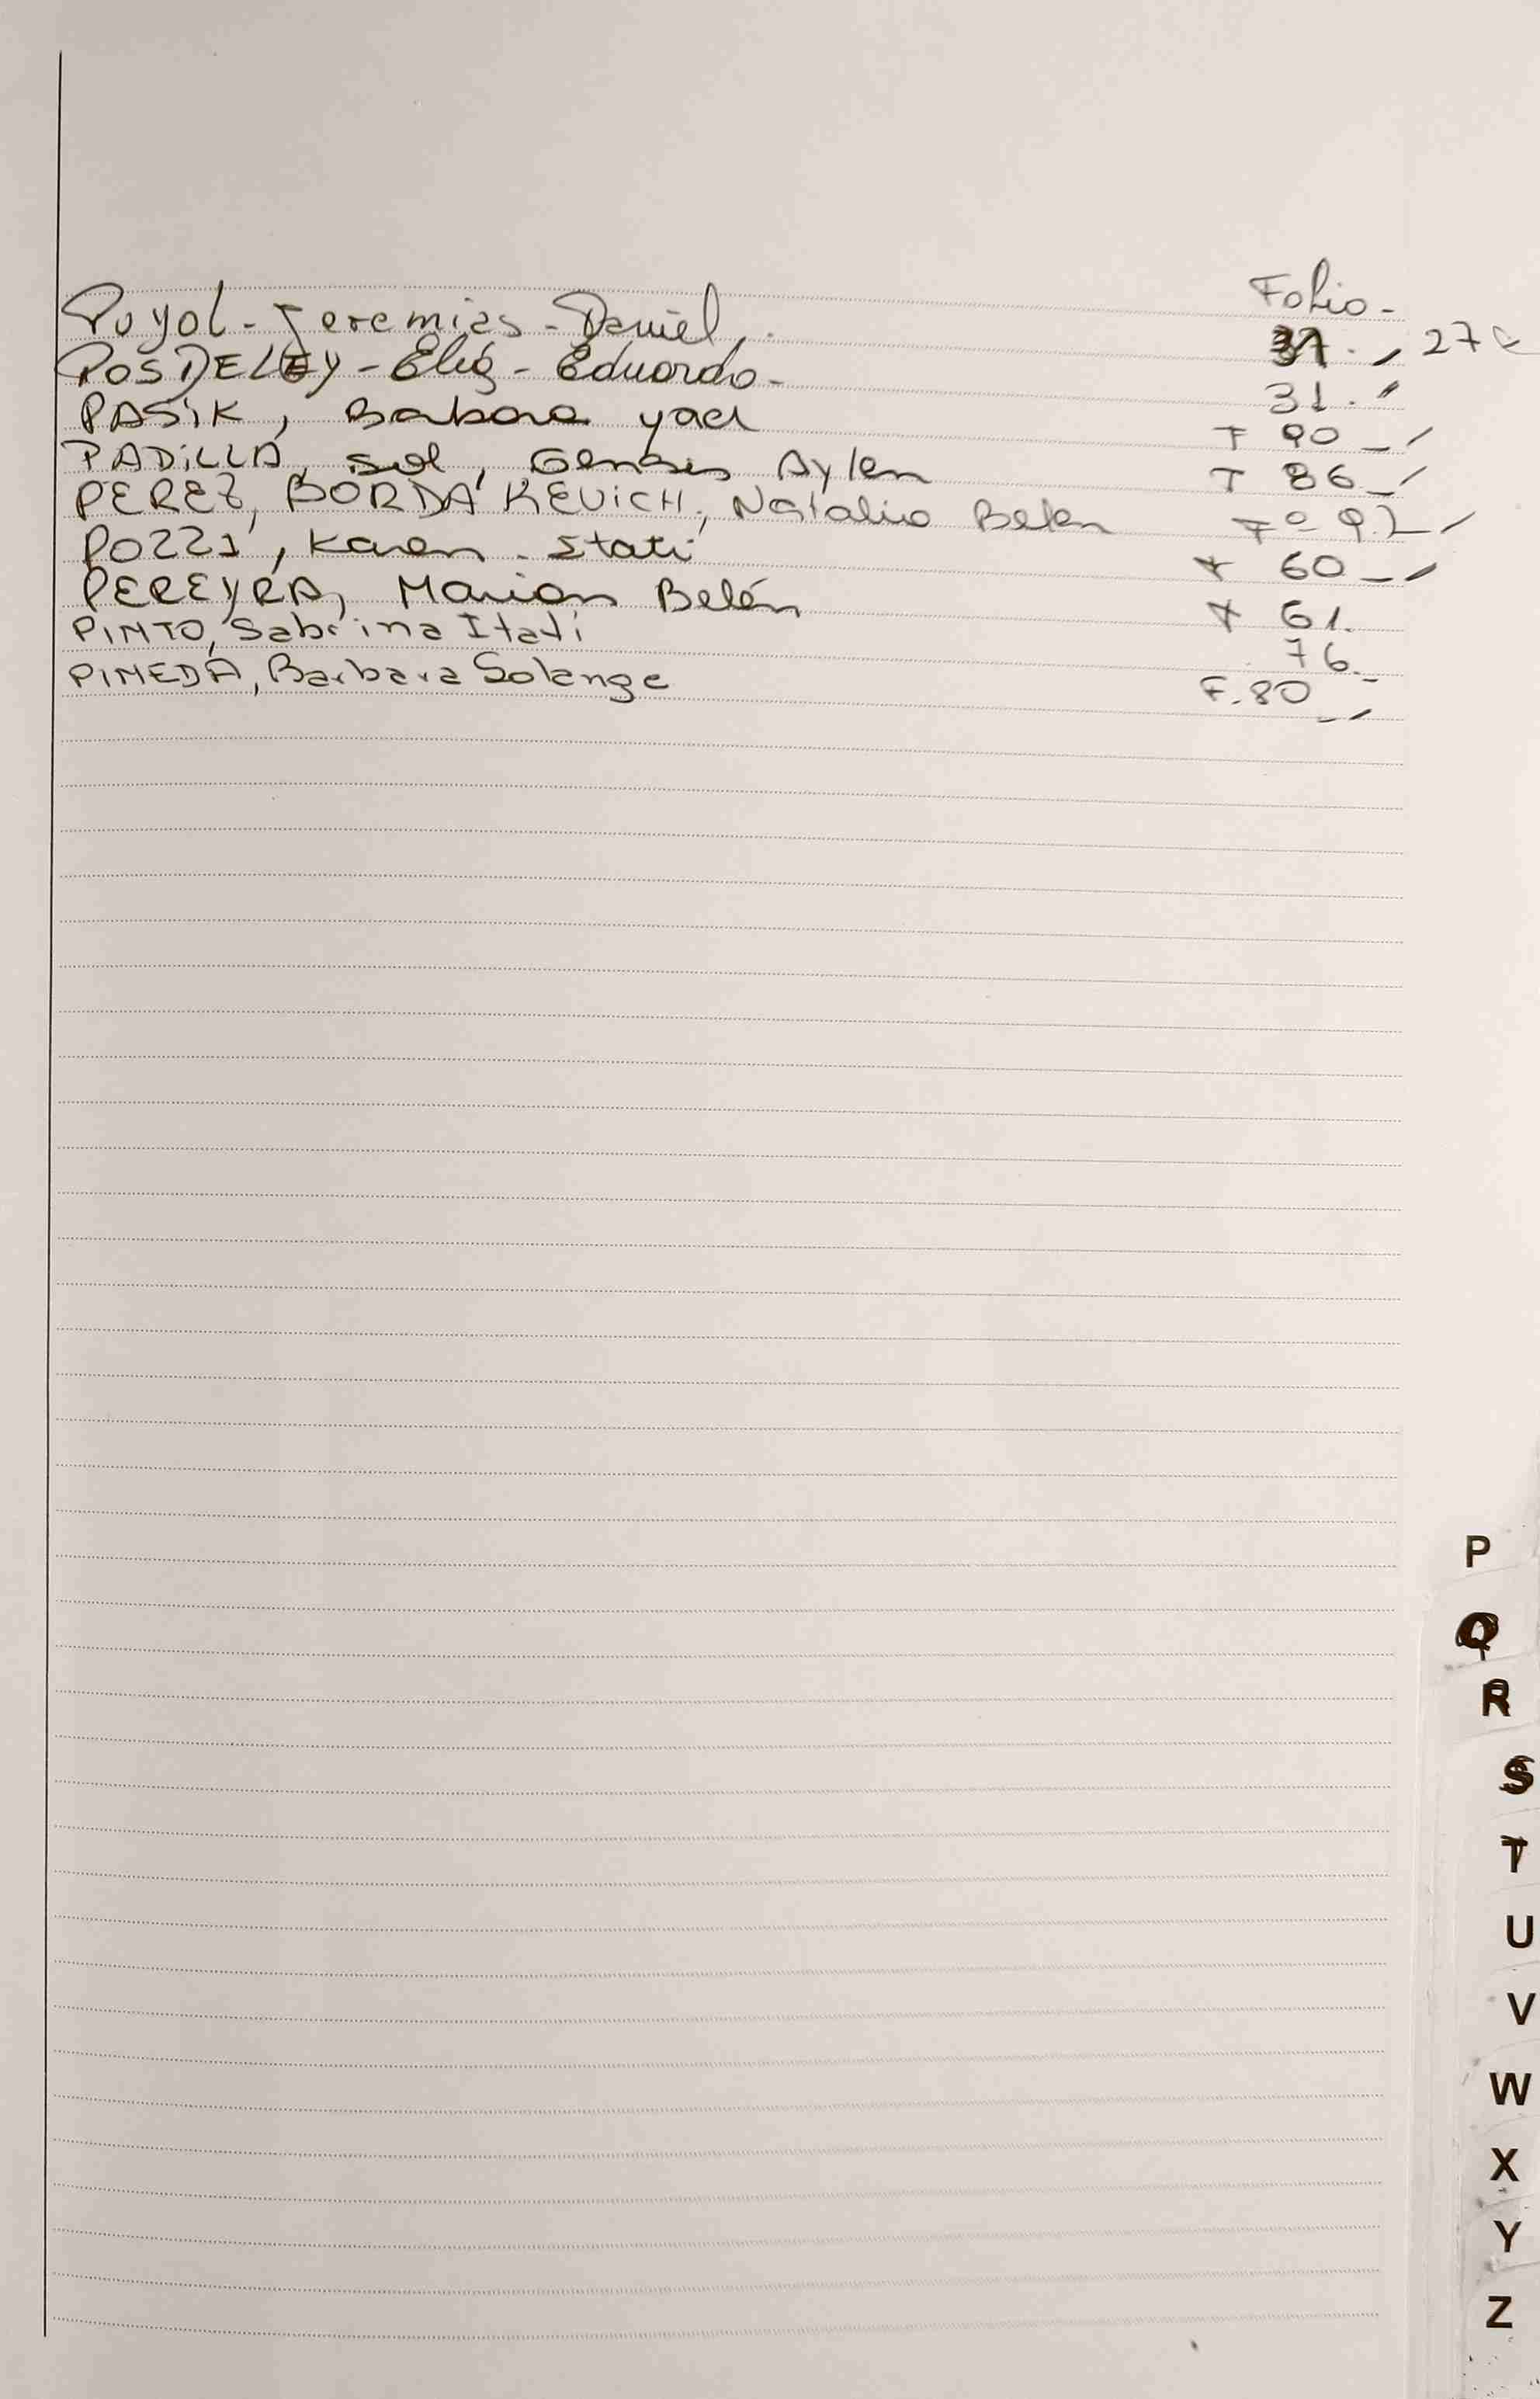 Folio -
Puyol - Jeremias - Daniel. 27
POSDELEY - Eliĝ - Eduardo - 31.
PASIK, Barbara yael F 90 -
PADILLA, Sol, Genesis Aylen F 86 -
PEREZ, BORDA KEVICH, Natalia Belen Fº 92
POZZI, Karen - Itati F 60 -
PEREYRA, Marian Belén F 61.
PINTO, Sabrina Itati 76 -
PINEDA, Barbara Solange F. 80 -
P
Q
R
S
T
U
V
W
X
Y
Z